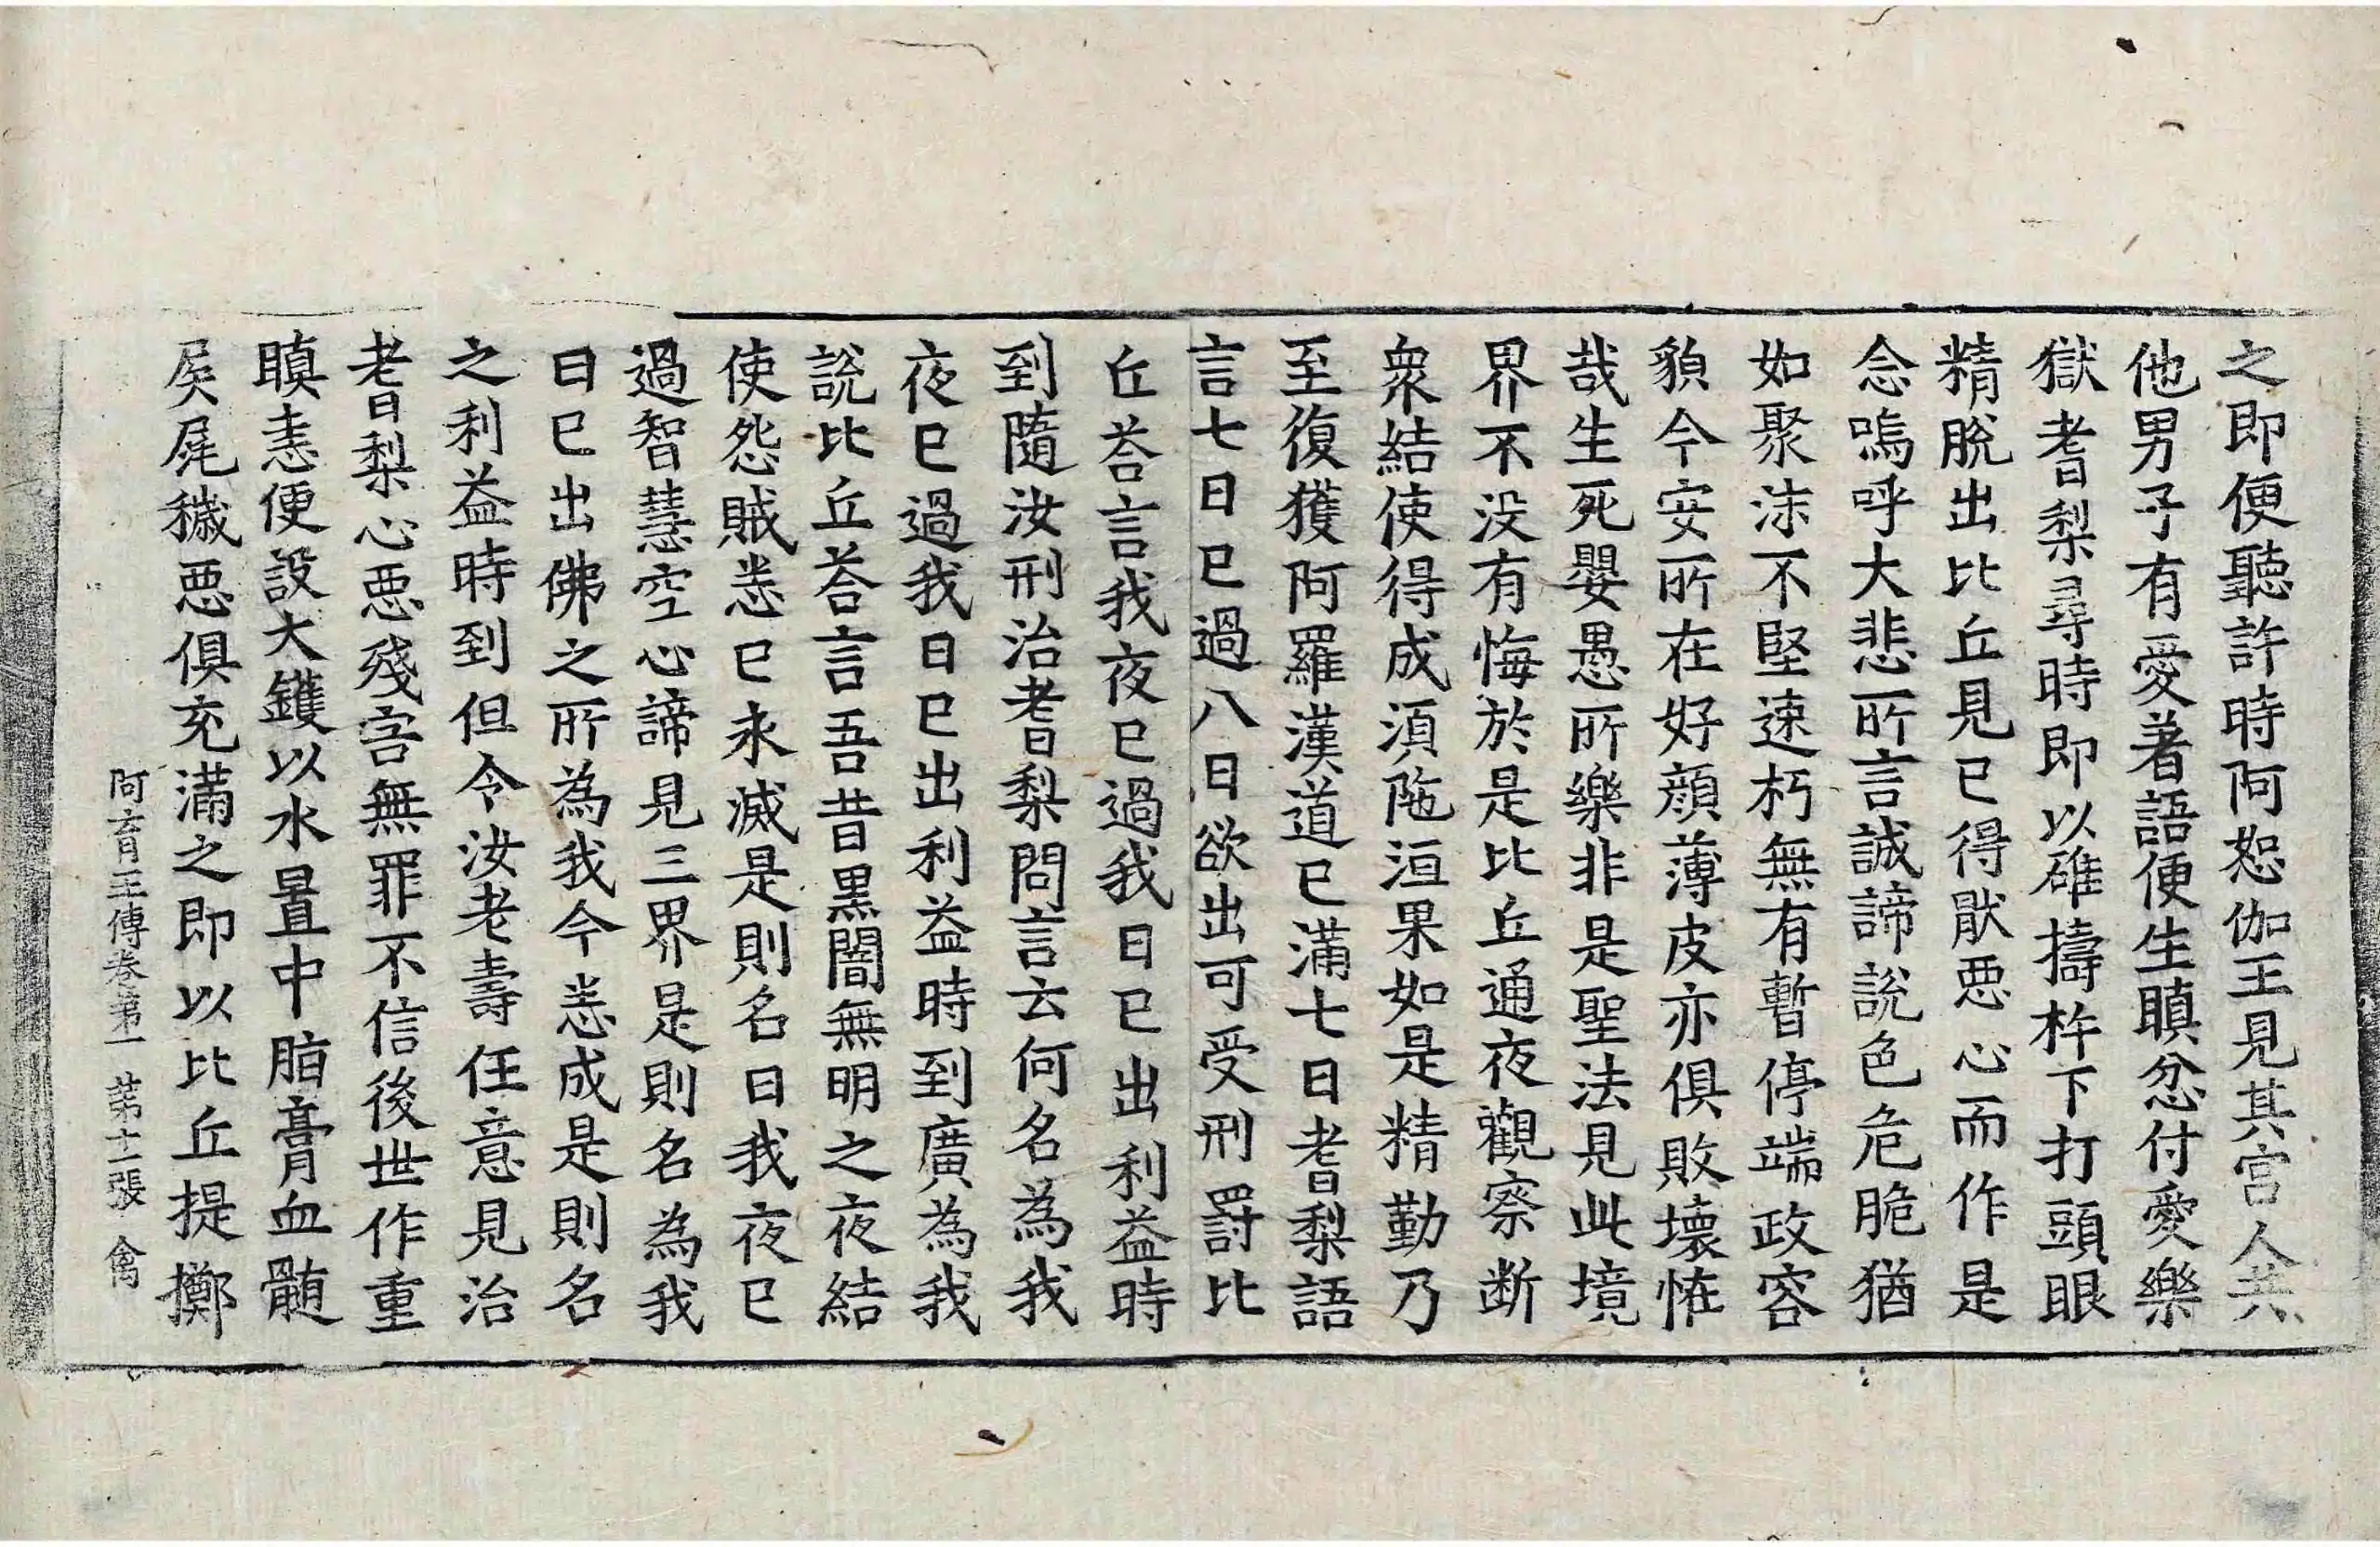 之即便聽許時阿恕伽王見其宮人共
他男子有愛著語便生瞋忿付愛樂
獄耆梨尋時即以碓擣杵下打頭眼
精脫出比丘見已得猒惡心而作是
念嗚呼大悲所言誠諦說色危脆猶
如聚沫不堅速朽無有暫停端政容
貌今安所在好顏薄皮亦俱敗壞恠
哉生死嬰愚所樂非是聖法見此境
界不没有悔於是比丘通夜觀察断
衆結使得成湏陁洹果如是精勤乃
至復獲阿羅漢道已滿七日耆梨語
言七日已過八日欲出可受刑罰比
丘荅言我夜已過我日已出利益時
到隨汝刑治耆梨問言云何名為我
夜已過我日已出利益時到廣為我
說比丘荅言吾昔黑闇無明之夜結
使怨賊悉已永滅是則名曰我夜已
過智慧空心諦見三界是則名為我
日已出佛之所為我今悉成是則名
之利益時到但令汝老壽任意見治
耆梨心惡殘害無罪不信後世作重
瞋恚便設大鑊以水置中脂膏血髄
屎尿穢惡俱充滿之即以比丘提擲
阿育王傳卷第一 第十二張 禽